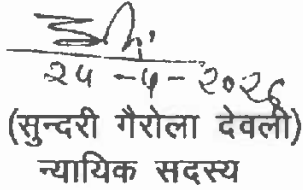 २५ -५- २०२६
(सुन्दरी गैरोला देवली)
न्यायिक सदस्य